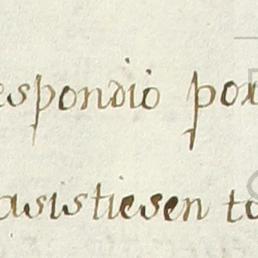 espondio por
asistiesen to